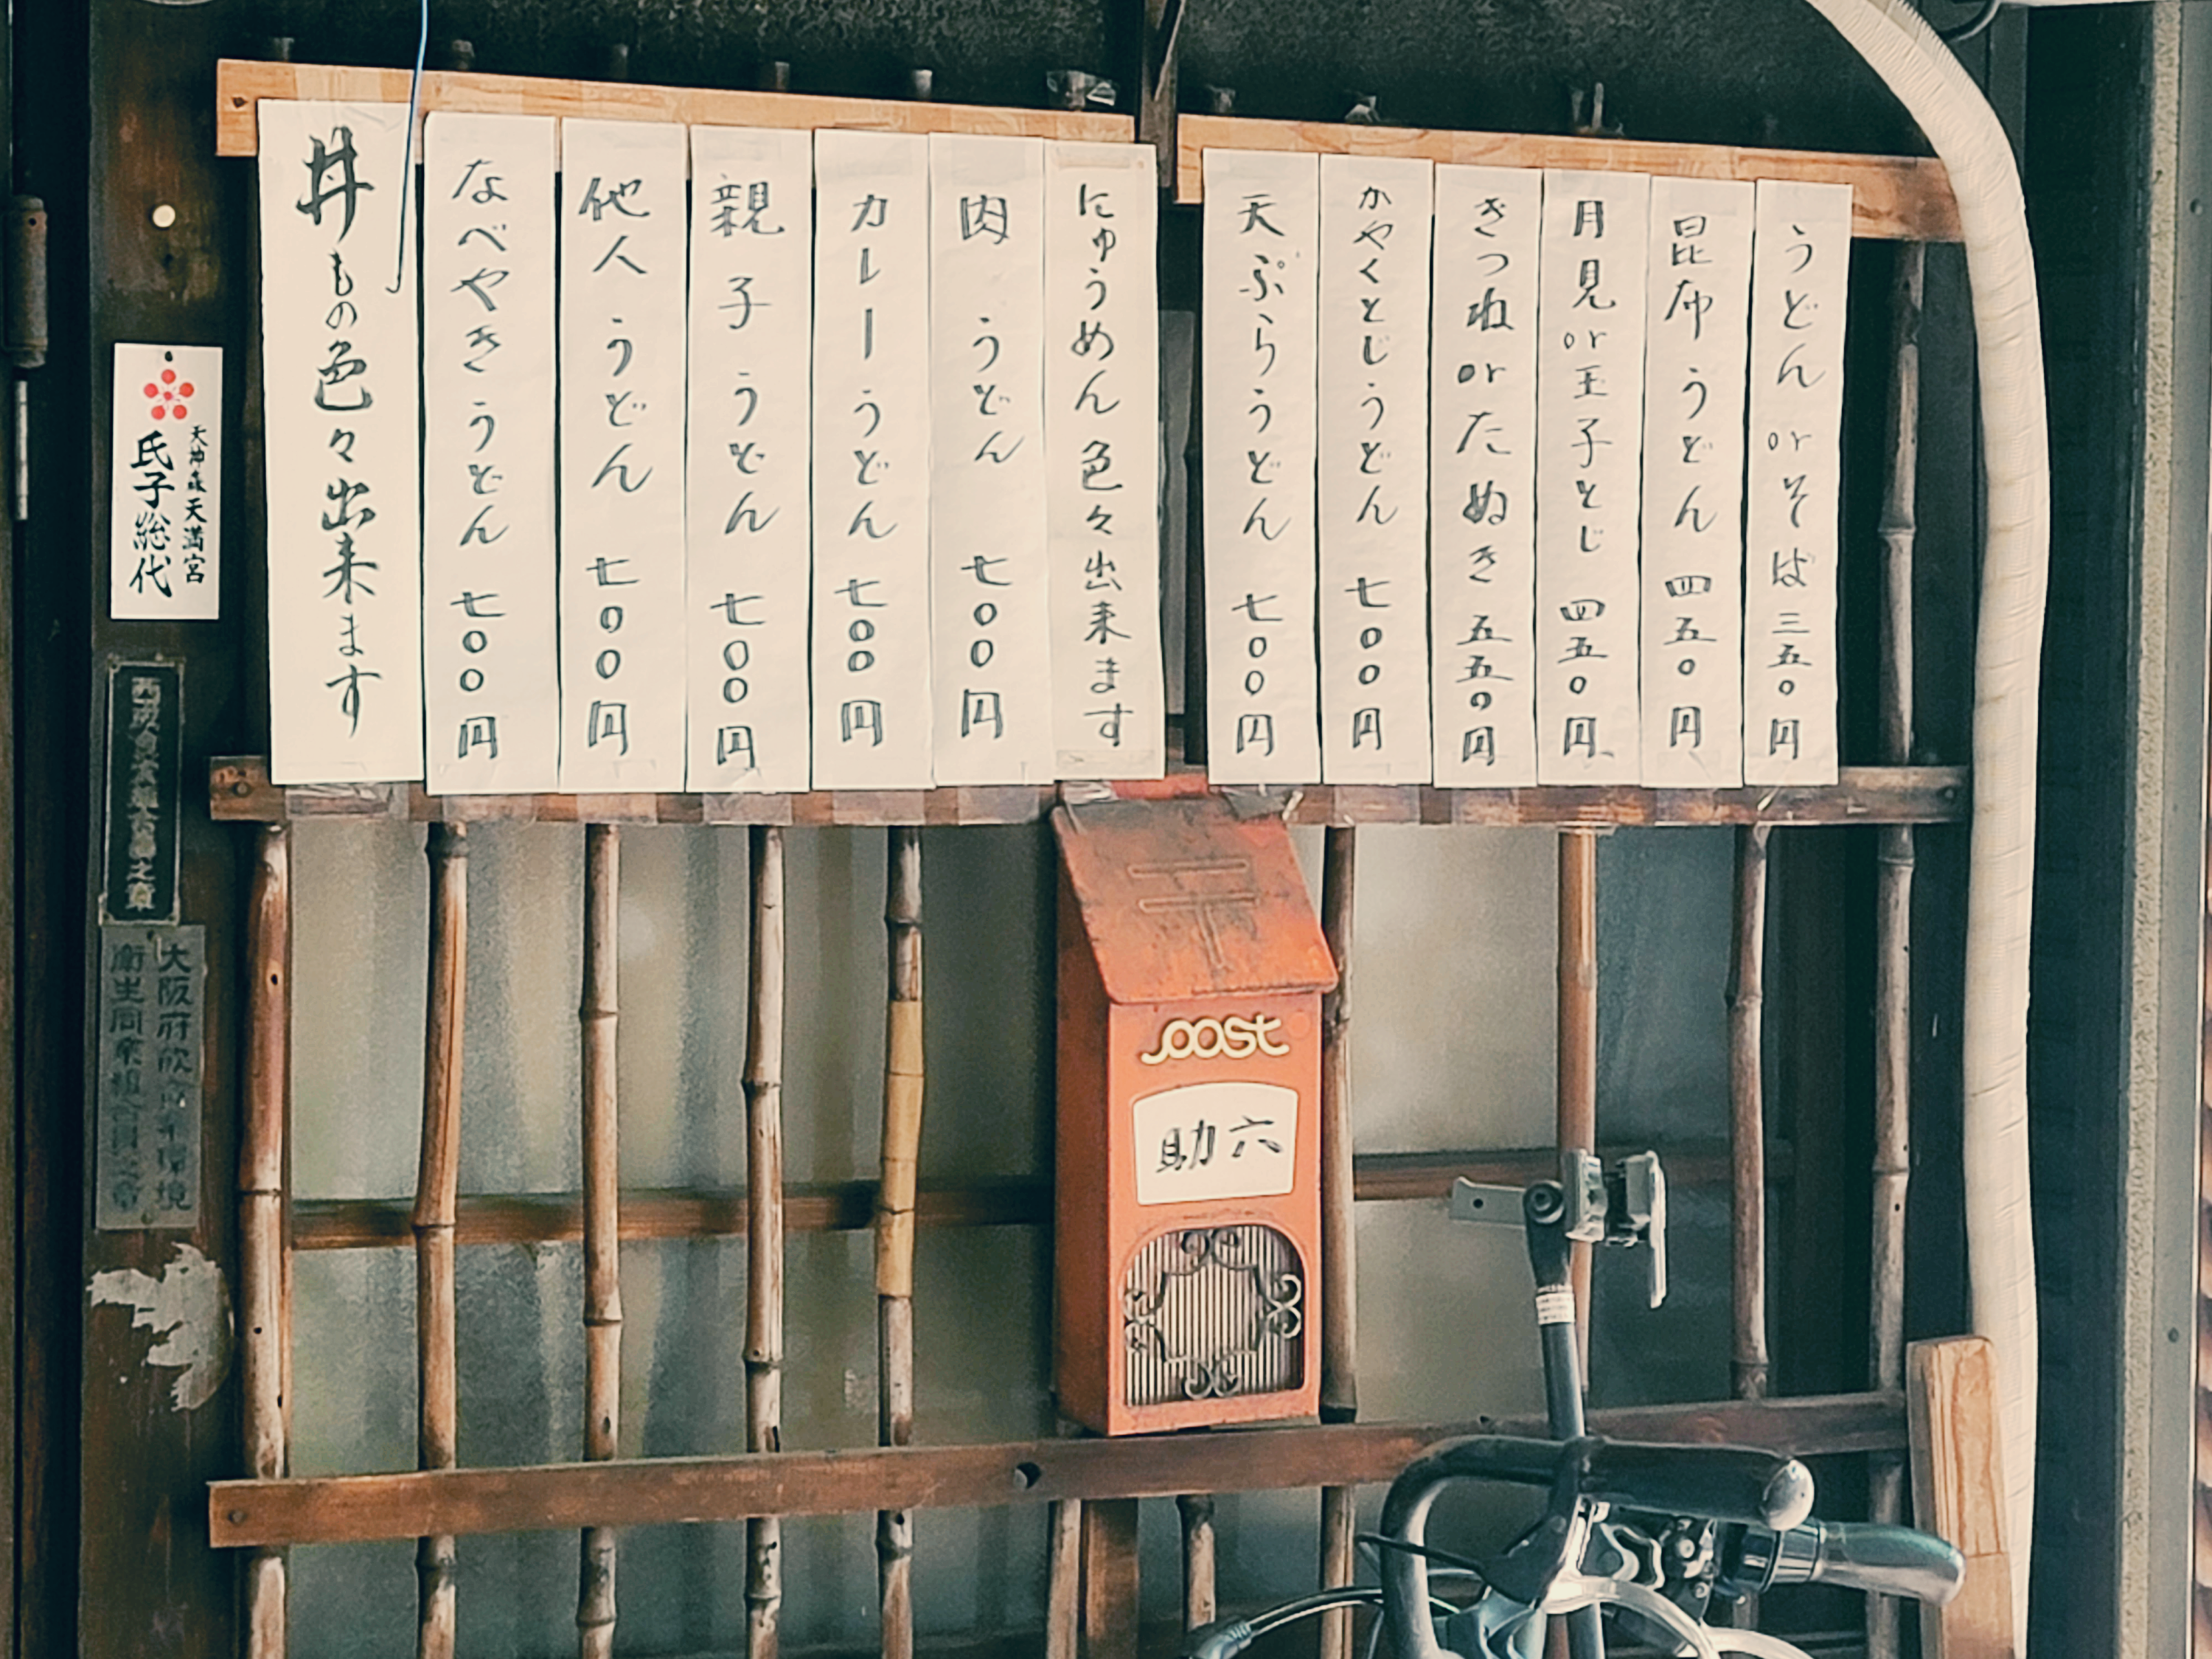 うどん or そば 三五〇円
昆布うどん 四五〇円
月見 or 玉子とじ 四五〇円
きつね or たぬき 五五〇円
かやくとじうどん 七〇〇円
天ぷらうどん 七〇〇円
にゅうめん色々出来ます
肉うどん 七〇〇円
カレーうどん 七〇〇円
親子うどん 七〇〇円
他人うどん 七〇〇円
なべやきうどん 七〇〇円
丼もの色々出来ます
天神森天満宮
氏子総代
大阪府飲食
環境
衛生同業組合員之章
之章
Joost
助六